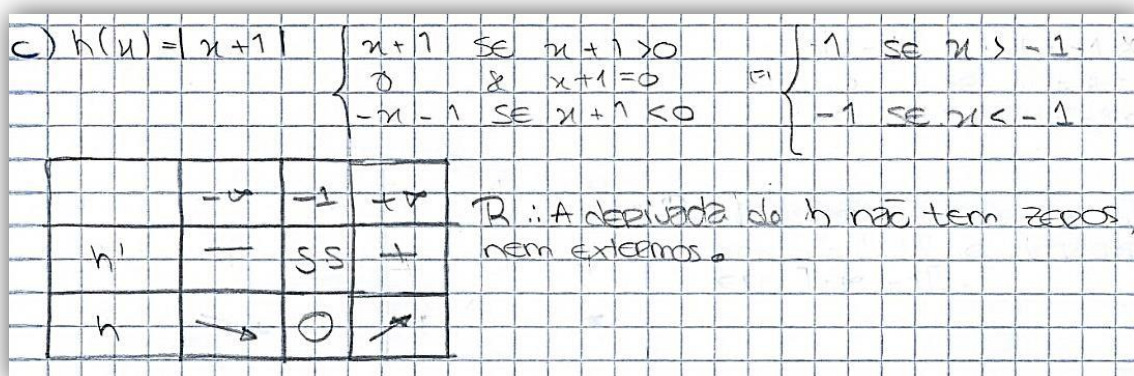 c) h(x) = |x+1| { x+1 SE x+1>0
0 & x+1=0
-x-1 SE x+1<0
(=) { 1 SE x > -1
-1 SE x < -1
-∞ -1 +∞
h' — SS +
h ↘ 0 ↗
R ∴ A derivada do h não tem zeros,
nem extermos.